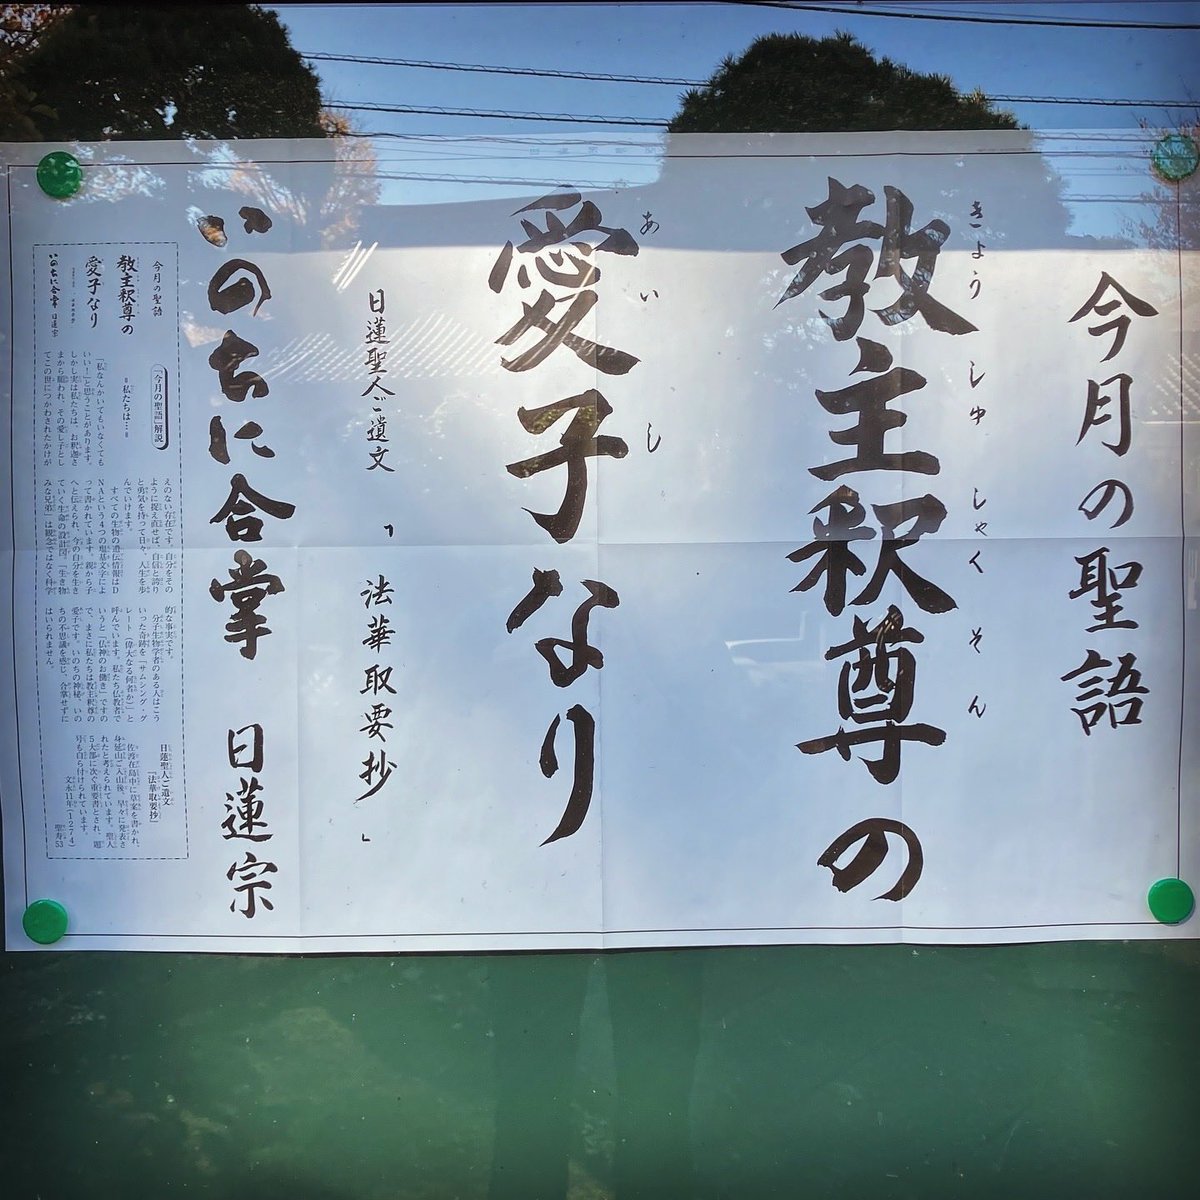 今月の聖語
教主釈尊の
きょう しゅ しゃく そん
愛子なり
あい し
日蓮聖人ご遺文 「法華取要抄」
いのちに合掌 日蓮宗
今月の聖語
教主釈尊の
愛子なり
いのちに合掌 日蓮宗
「今月の聖語」解説
=私たちは…=
「私なんかいてもいなくても
いい！」と思うことがあります。
しかし実は私たちは、お釈迦さ
まから願われ、その愛し子とし
てこの世につかわされたかけが
えのない存在です。自分をその
ように捉え直せば、自信と誇り
と勇気を持って日々、人生を歩
んでいけます。
すべての生物の遺伝情報はD
NAという4つの塩基文字によ
って書かれています。親から子
へと伝えられ、今の自分を生き
ていく生命の設計図。「生き物
みな兄弟」は観念ではなく科学
的な事実です。
分子生物学者のある人はこう
いった奇跡を「サムシング・グ
レート（偉大なる何者か）」と
呼んでいます。私たち仏教者で
いうと「仏神のお働き」ですの
で、まさに私たちは教主釈尊の
愛子です。いのちの神秘、いの
ちの不思議を感じ、合掌せずに
はいられません。
日蓮聖人ご遺文
「法華取要抄」
佐渡在島中に草案を書かれ、
身延山ご入山後、早々に発表さ
れたと考えられています。聖人
5大部に次ぐ重要書とされ、題
号も自ら付けられています。
文永11年（1274）
聖寿53